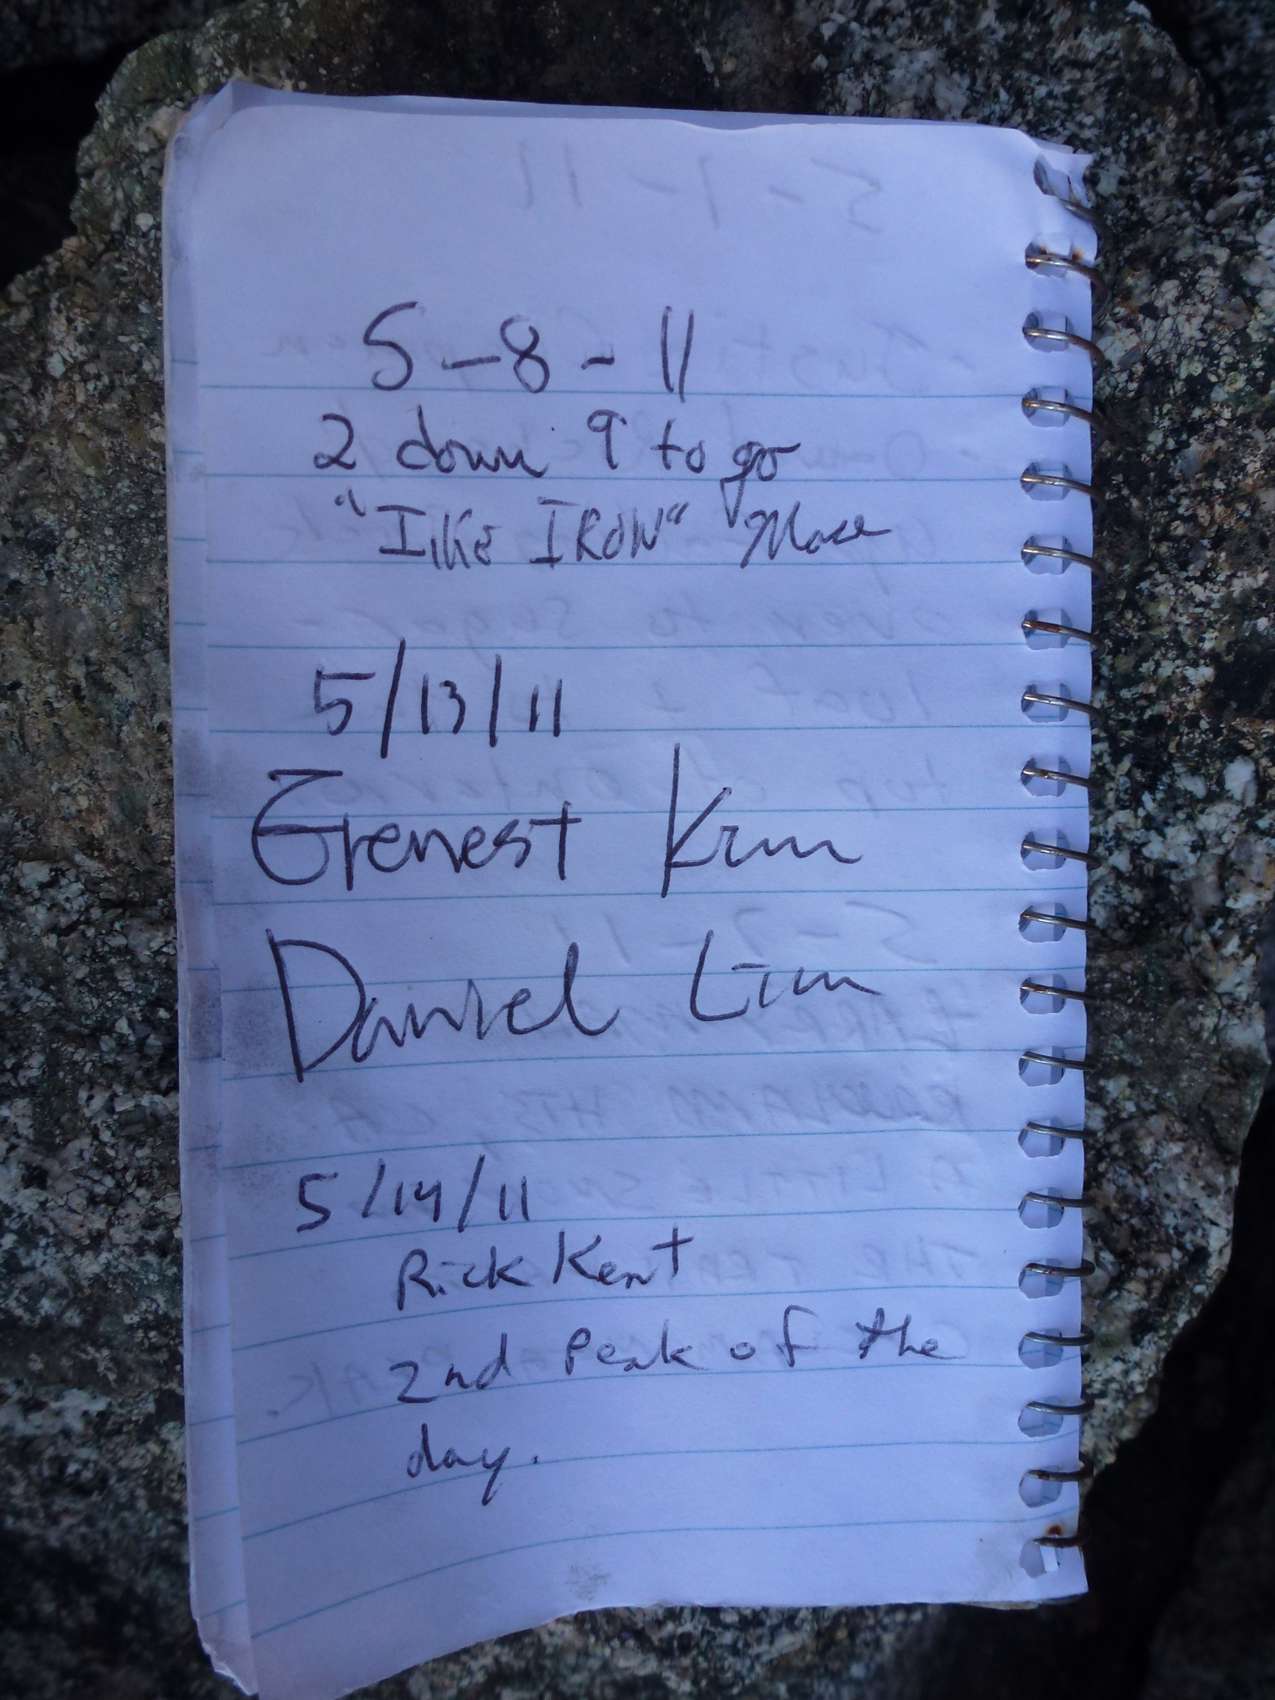 5-8-11
2 down 9 to go
"Iike IRON"
5/13/11
Erenest Kim
Daniel Lim
5/14/11
Rick Kent
2nd Peak of the
day.